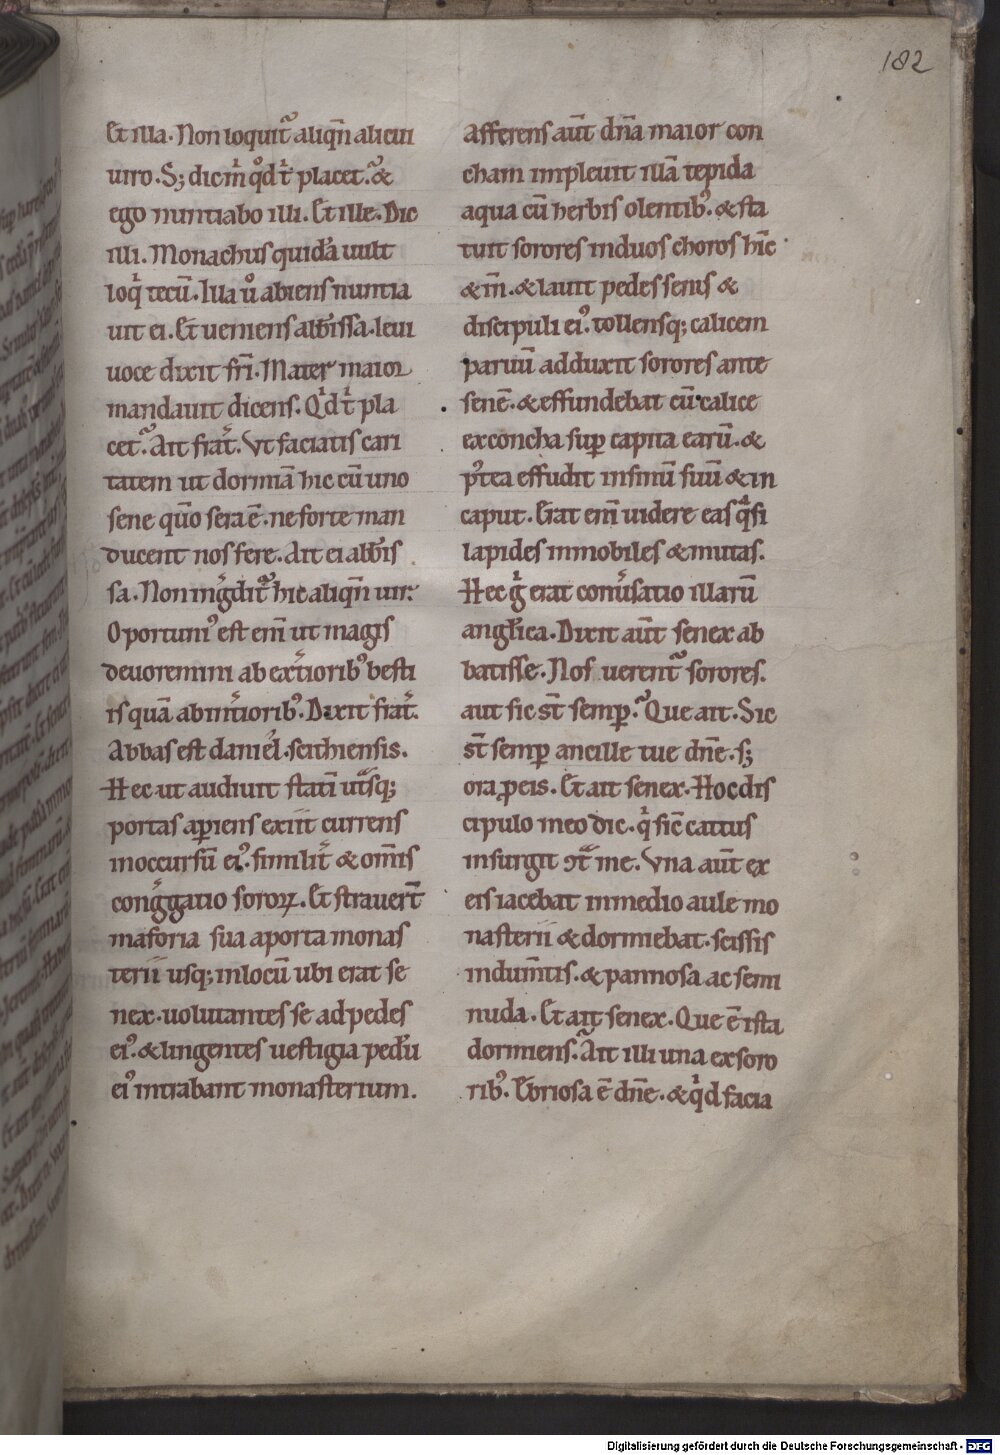 182
Et illa. Non loquit᷑ aliqn̄ alicui
uiro. S; dic m̄ qd̓ t̄ placet. &
ego nuntiabo illi. Et ille. Dic
illi. Monachus quidā uult
loq̓ tecū. Illa ů abiens nuntia
uit ei. Et ueniens abb̄issa. leui
uoce dixit fr̄i. Mater maior
mandauit dicens. Qd̓ t̄ pla
cet. Ait frat̓. Vt faciatis cari
tatem ut dormiā hic cū uno
sene qm̄o sera ē. ne forte man
ducent nos fere. Ait ei abb̄is
sa. Non ingͥdit᷑ hic aliqn̄ uir.
Oportuni᾽ est em̄ ut magis
deuoremini ab ext̓iorib᾽ besti
is quā ab int̓iorib᾽. Dixit frat̓.
Abbas est daniel scithiensis.
Hec ut audiuit statī ut̓sq;
portas ap̱iens exiit currens
in occursū ei᾽. similit̓ & om̄is
cong̓gatio soroꝝ. Et strauert̄
maforia sua a porta monas
terii usq; in locū ubi erat se
nex. uolutantes se ad pedes
ei᾽. & lingentes uestigia pedū
ei᾽ intrabant monasterium.
Afferens aut̄ dn̄a maior con
cham impleuit illā tepida
aqua cū herbis olentib᾽. & sta
tuit sorores in duos choros hīc
& īn. & lauit pedes senis &
discipuli ei᾽. tollensq; calicem
paruū adduxit sorores ante
senē. & effundebat cū calice
ex concha sup̱ capita earū. &
p᾽tea effudit in sinū suū & in
caput. Erat em̄ uidere eas qͣsi
lapides inmobiles & mutas.
Hec g̓ erat conu̓satio illarū
angl̓ica. Dixit aut̄ senex ab
batisse. Nos uerent᷑ sorores.
aut sic st̄ semp̱. Que ait. Sic
st̄ semp̱ ancille tue dn̄e. s;
ora ꝓ eis. Et ait senex. Hoc dis
cipulo meo dic. q̓ sic̄ cattus
insurgit ↄtͣ me. Vna aut̄ ex
eis iacebat in medio aule mo
nasterii & dormiebat. scissis
indum̄tis. & pannosa ac semi
nuda. Et ait senex. Que ē ista
dormiens. Ait illi una ex soro
rib᾽. Ebriosa ē dn̄e. & qd̓ facia
Digitalisierung gefördert durch die Deutsche Forschungsgemeinschaft - DFG